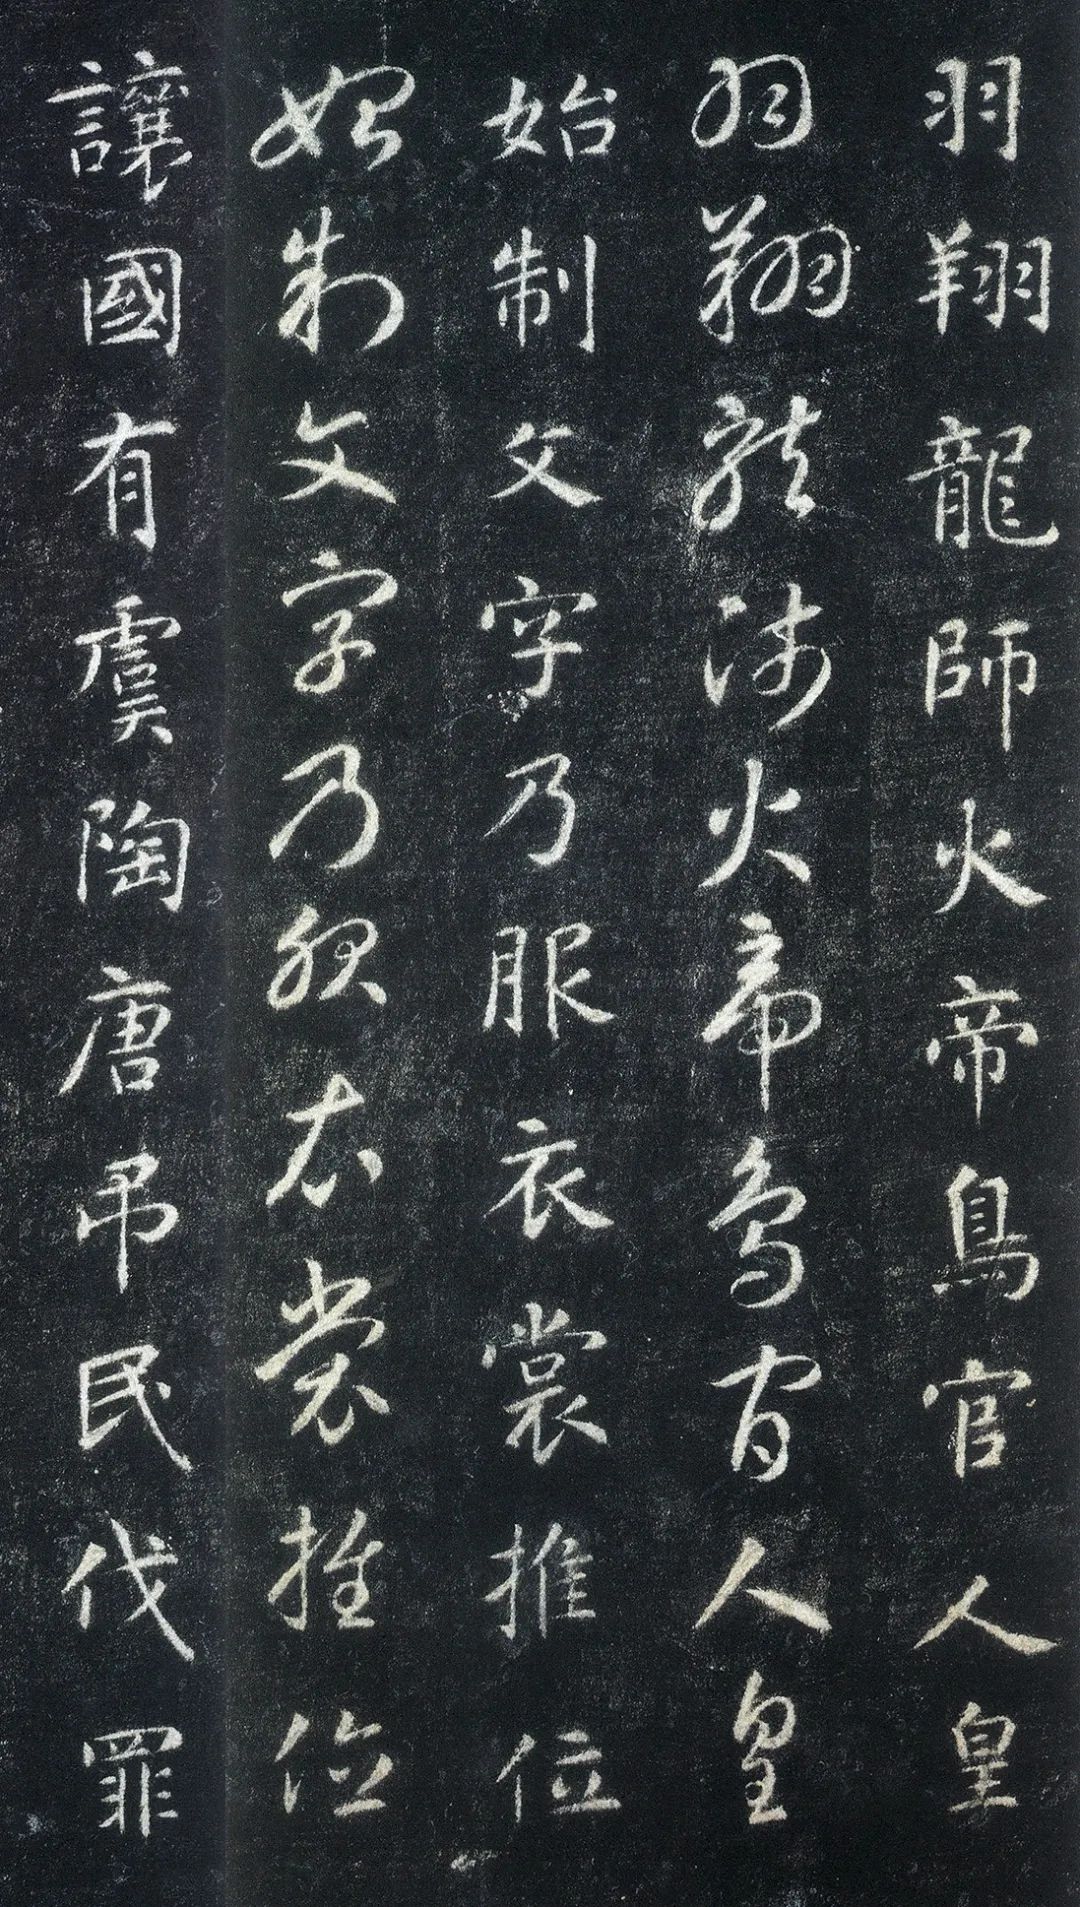 羽翔龍師火帝鳥官人皇
羽翔龍師火帝鳥官人皇
始制文字乃服衣裳推位
始制文字乃服衣裳推位
讓國有虞陶唐弔民伐罪